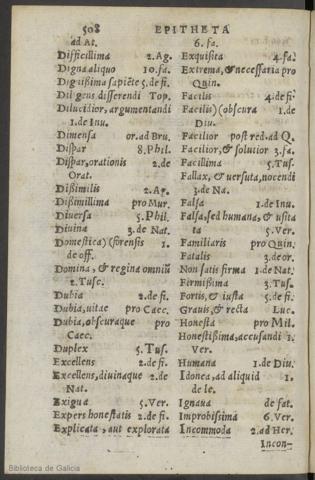 508 EPITHETA
ad At.
Difficillima 2. Ag.
Digna aliquo 10. fa.
Dignißima sapiẽte 5. de fi.
Diligens differendi Top.
Dilucidior, argumentandi
1. de Inu.
Dimensa or. ad Bru.
Dispar 8. Phil.
Dispar, orationis 2. de
Orat.
Dißimilis 2. Ag.
Dißimillima pro Mur.
Diuersa 5. Phil.
Diuina 3. de Nat.
Domestica) (forensis 1.
de off.
Domina, & regina omniũ
2. Tusc.
Dubia 2. de fi.
Dubia, uitae pro Caec.
Dubia, obscuraque pro
Caec.
Duplex 5. Tus.
Excellens 2. de fi.
Excellens, diuinaque 2. de
Nat.
Exigua 5. Ver.
Expers honestatis 2. de fi.
Explicata, aut explorata
6. fa.
Exquisita 4. fa.
Extrema, & necessaria pro
Quin.
Facilis 4. de fi.
Facilis) (obscura 1. de
Diu.
Facilior post red. ad Q.
Facilior, & solutior 3. fa.
Facillima 5. Tus.
Fallax, & uersuta, nocendi
3. de Na.
Falsa 1. de Inu.
Falsa, sed humana, & usita
ta 5. Ver.
Familiaris pro Quin.
Fatalis 3. de or.
Non satis firma 1. de Nat.
Firmißima 3. Tus.
Fortis, & iusta 5. de fi.
Grauis, & recta Luc.
Honesta pro Mil.
Honestißima, accusandi 1.
Ver.
Humana 1. de Diu.
Idonea, ad aliquid 1.
de le.
Ignaua de fat.
Improbißima 6. Ver.
Incommoda 2. ad Her.
Incon-
Biblioteca de Galicia